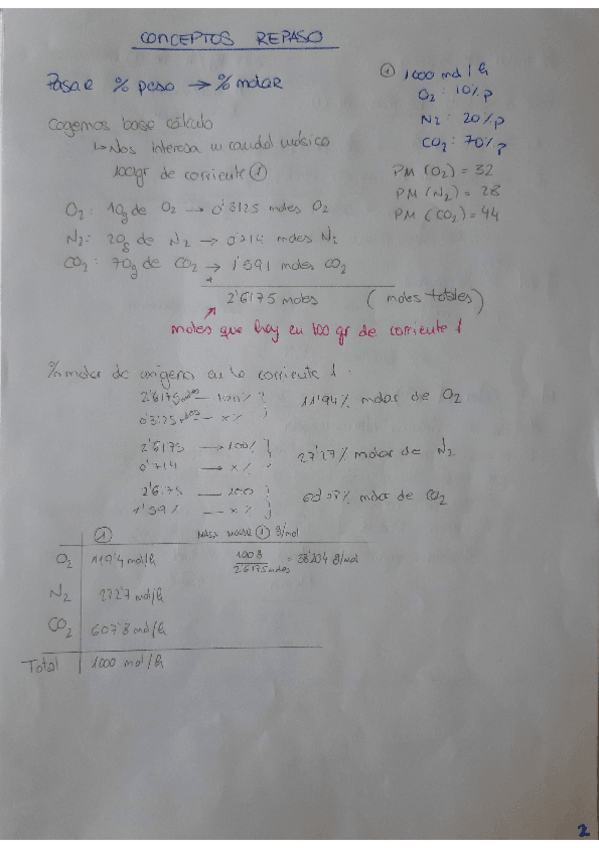 CONCEPTOS REPASO
Pasar % peso → % molar
① 1000 mol/h
O2: 10% p
N2: 20% p
CO2: 70% p
PM (O2) = 32
PM (N2) = 28
PM (CO2) = 44
Cogemos base cálculo
↳ Nos interesa un caudal másico
100gr de corriente ①
O2: 10g de O2 → 0'3125 moles O2
N2: 20g de N2 → 0'714 moles N2
CO2: 70g de CO2 → 1'591 moles CO2
+
2'6175 moles (moles totales)
moles que hay en 100 gr de corriente 1
% molar de oxígeno en la corriente 1.
2'6175 moles — 100%
0'3125 moles — x% 11'94% molar de O2
2'6175 → 100%
0'714 → x% 27'27% molar de N2
2'6175 — 100
1'591 — x% molar de CO2
① Masa molar ① g/mol
O2 119'4 mol/h 100g / 2'6175 moles = 38'204 g/mol
N2 272'7 mol/h
CO2 607'8 mol/h
Total 1000 mol/h
2